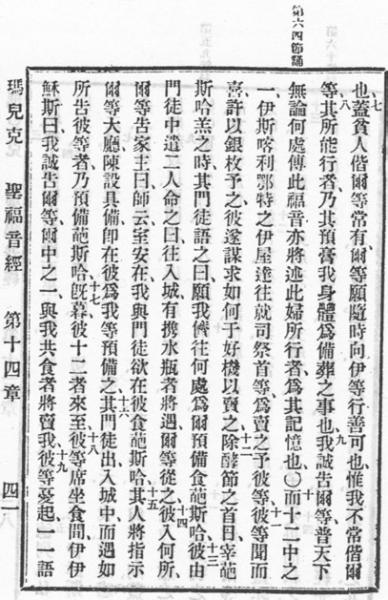 第六四節誦
也七蓋貧人偕爾等常有、爾等願隨時向伊等行善可也、惟我不常偕爾
等、八其所能行者、乃其預膏我身體、為備葬之事也、九我誠告爾等、普天下
無論何處傳此福音、亦將述此婦所行者、為其記憶也、〇十而十二中之
一、伊斯喀利鄂特之伊屋達、往就司祭首等、為賣之予彼等、十一彼等聞而
喜、許以銀枚予之、彼遂謀求如何于好機以賣之、十二除酵節之首日、宰葩
斯哈羔之時、其門徒語之曰、願我儕往何處為爾預備食葩斯哈、十三彼由
門徒中遣二人、命之曰、往入城、有攜水瓶者將遇爾等、從之、十四彼入何所、
爾等告家主曰、師云、室安在、我與門徒欲在彼食葩斯哈、十五其人將指示
爾等大廳陳設具備、即在彼為我等預備之、十六其門徒出、入城中、而遇如
所告彼等者、乃預備葩斯哈、十七旣暮、彼十二者來至、十八彼等席坐食間、伊伊
穌斯曰、我誠告爾等、爾中之一、與我共食者、將賣我、十九彼等憂、起一一語
瑪兒克 聖福音經 第十四章 四一